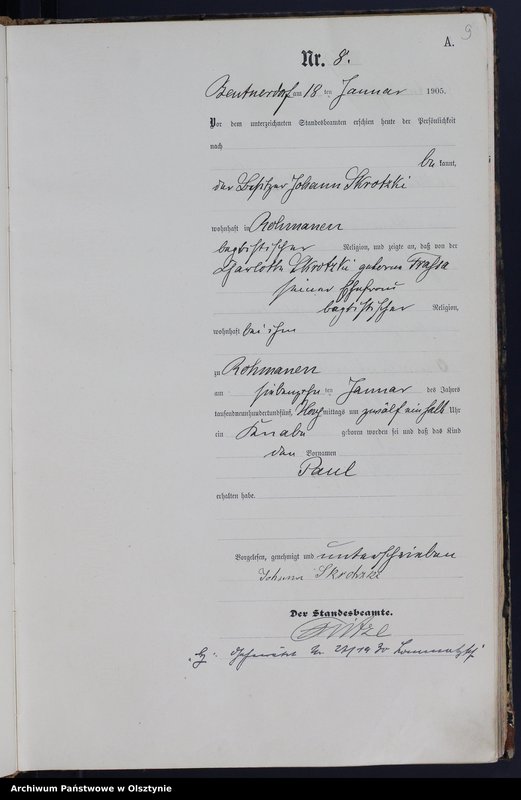 9
A.
Nr. 8.
Beutnerdorf am 18 ten Januar 1905.
Vor dem unterzeichneten Standesbeamten erschien heute der Persönlichkeit
nach
be kannt,
der Besitzer Johann Skrotzki
wohnhaft in Rohmanen
baptistischer Religion, und zeigte an, daß von der
Charlotte Skrotzki geborene
seiner Ehefrau
baptistischer Religion,
wohnhaft bei ihm
zu Rohmanen
am siebenzehn ten Januar des Jahres
tausendneunhundertundfünf, Nachmittags um zwölf einhalb Uhr
ein Knabe geboren worden sei und daß das Kind
den Vornamen
Paul
erhalten habe.
Vorgelesen, genehmigt und unterschrieben
Johann Skrotzki
Der Standesbeamte.
Nr.
Archiwum Państwowe w Olsztynie